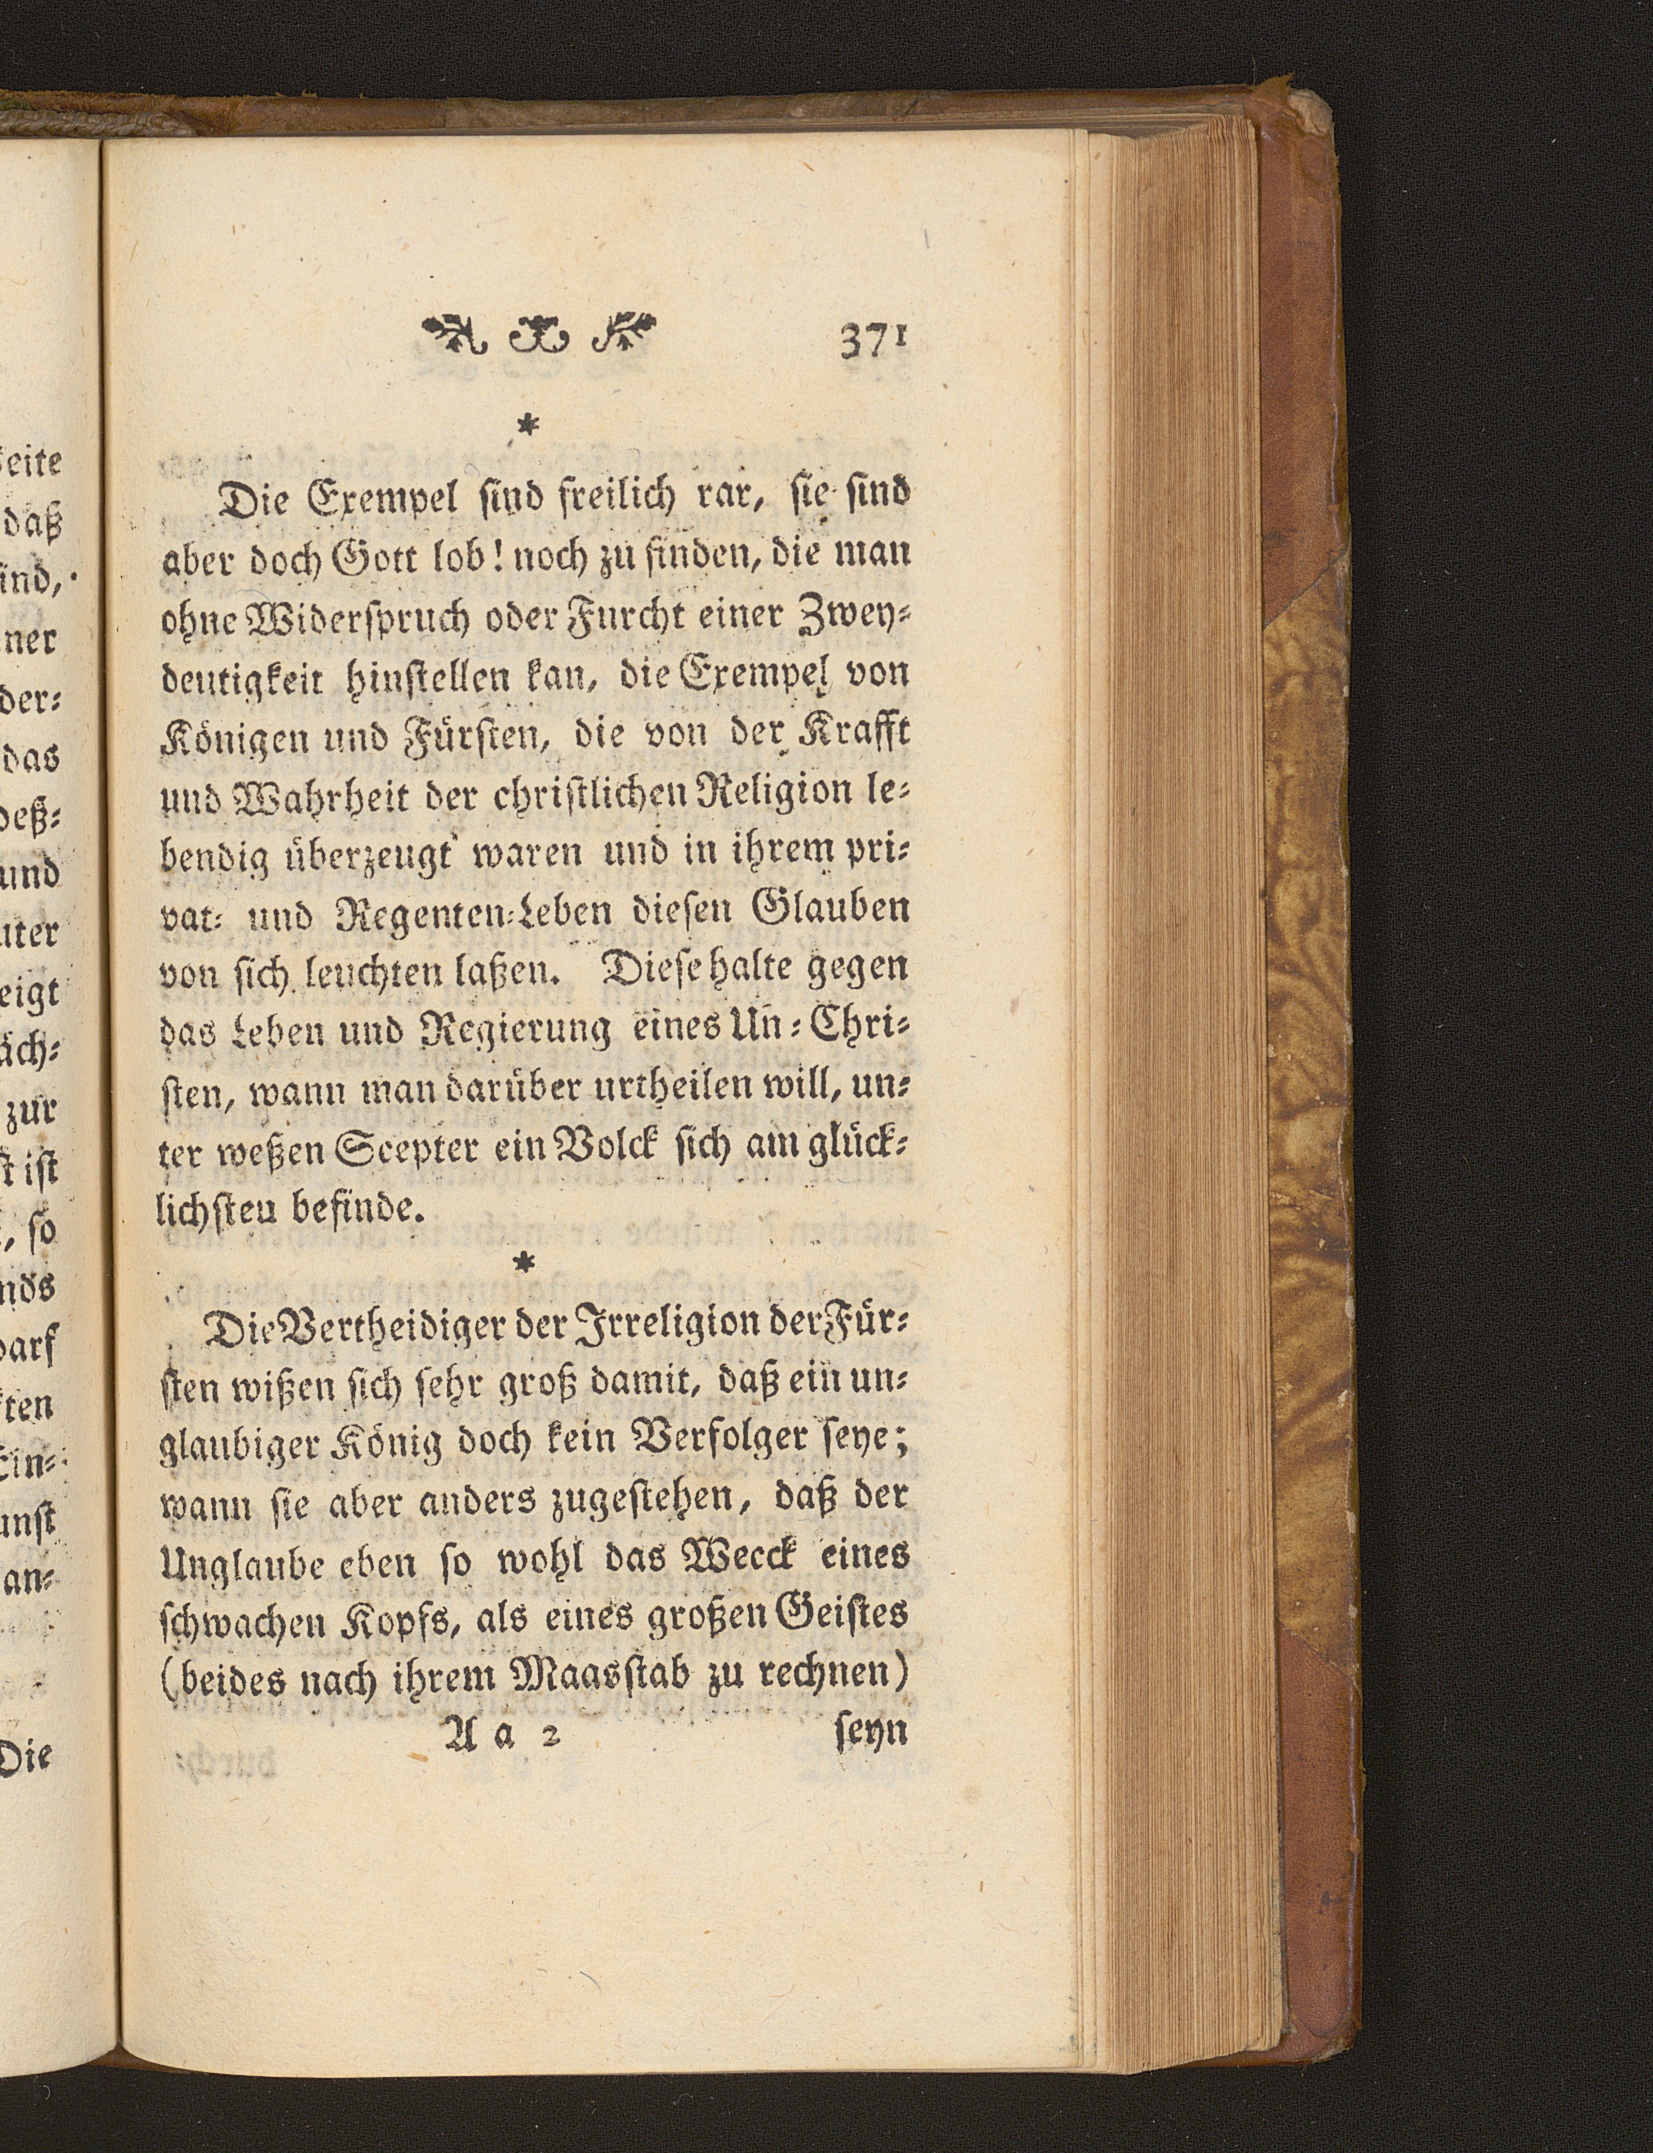 371
*
Die Exempel ſind freilich rar, ſie ſind
aber doch Gott lob! noch zu finden, die man
ohne Widerſpruch oder Furcht einer Zwey⸗
deutigkeit hinſtellen kan, die Exempel von
Königen und Fürſten, die von der Krafft
und Wahrheit der chriſtlichen Religion le⸗
bendig überzeugt waren und in ihrem pri⸗
vat⸗ und Regenten⸗Leben dieſen Glauben
von ſich leuchten laßen. Dieſe halte gegen
das Leben und Regierung eines Un⸗Chri⸗
ſten, wann man darüber urtheilen will, un⸗
ter weßen Scepter ein Volck ſich am glück⸗
lichſten befinde.
*
Die Vertheidiger der Irreligion der Für⸗
ſten wißen ſich ſehr groß damit, daß ein un⸗
glaubiger König doch kein Verfolger ſeye;
wann ſie aber anders zugeſtehen, daß der
Unglaube eben ſo wohl das Werck eines
ſchwachen Kopfs, als eines großen Geiſtes
(beides nach ihrem Maasſtab zu rechnen)
A a 2 ſeyn